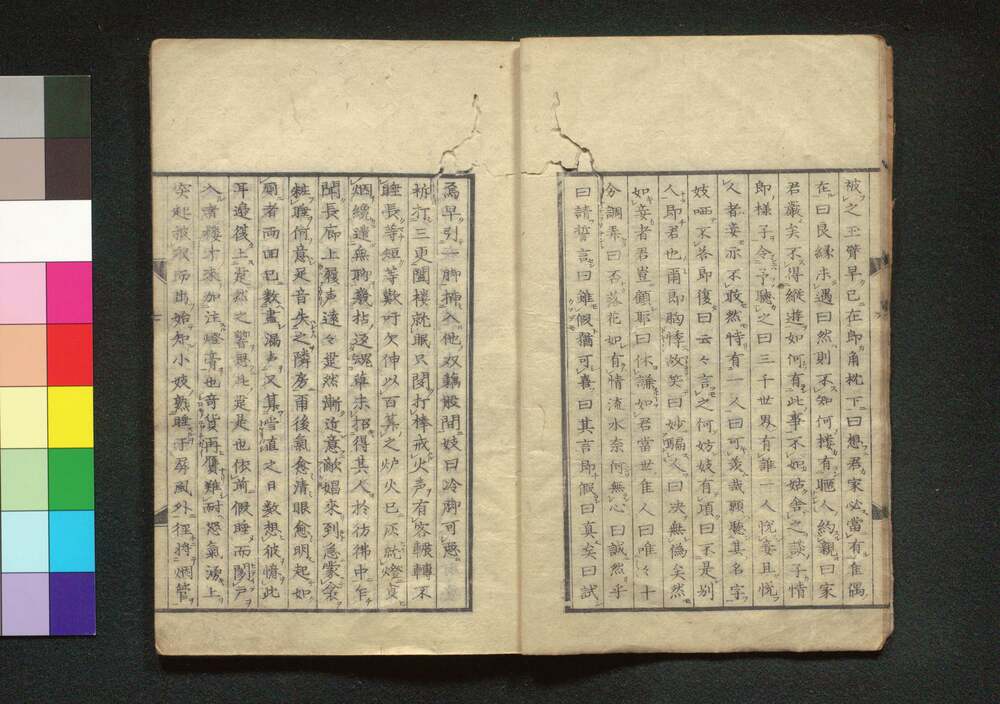 被之玉臂早已在郎角枕下曰想君家必當有佳偶
在曰良縁未遇曰然則不知何楼有昵人約観曰家
君嚴矣不得縦遊如何有此事不如姑舎之談子情
郎様子令予聴之曰三千世界有誰一人悦妾且悦
人者妾亦不敢然特有一人曰可羨哉願聴其名字
妓哂不答郎復曰云々言之何妨妓有頃曰不是別
人即君也甫即胸悸故笑曰妙騙人曰决無偽矣然
如妾者君豈顧耶曰休謙如君當世佳人曰唯々十
分調弄曰否落花如有情流水奈何無心曰誠然乎
曰請誓言曰雖假猶可喜曰其言即假曰真矣曰試
為早引一脚挿入他双藕股間妓曰冷脚可悪
柝打三更闔楼就眠只聞打棒戒火声有客輾轉不
睡長等短等歎吁欠伸以百算之炉火已灰就燈吹
烟繞遣無聊最拈逕褪華未招得其人於彷彿中乍
聞長廊上履声遠々跫然漸近意敵娼來到急蒙衾
粧睡何意足音失之隣房雨後氣愈清眼愈明起如
厠者両回已数盡漏声又算当値之日数想彼憶此
耳邉復上跫然之響思此是是也依前假睡而開戸
入者楼丁來加注燈膏也奇貨再贋難耐怒氣湧上
突起披衣而出始知小妓熟睡于屏風外徑將烟管